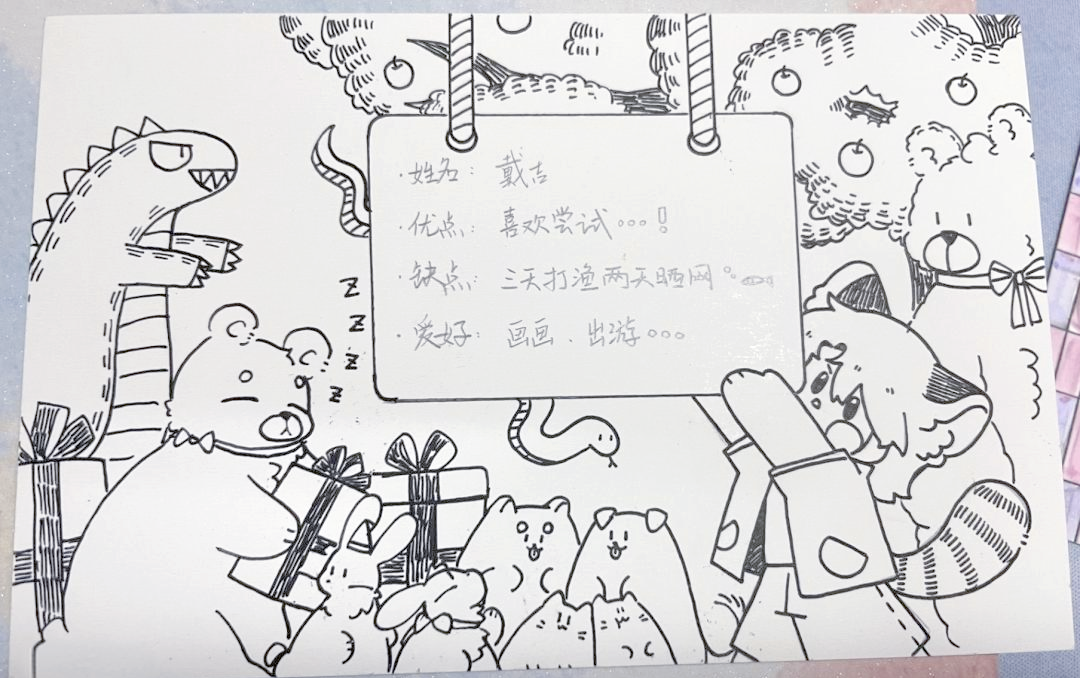 ·姓名：戴吉
·优点：喜欢尝试···！
·缺点：三天打渔两天晒网
·爱好：画画、出游○○○
z
z
z
z